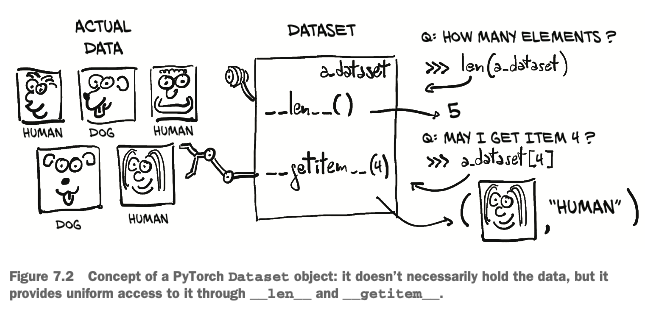 ACTUAL
DATA
HUMAN
DOG
HUMAN
DOG
HUMAN
DATASET
a_dataset
__len__()
__getitem__(4)
Q: HOW MANY ELEMENTS?
>>> len(a_dataset)
5
Q: MAY I GET ITEM 4?
>>> a_dataset[4]
( , "HUMAN")
Figure 7.2 Concept of a PyTorch Dataset object: it doesn't necessarily hold the data, but it
provides uniform access to it through __len__ and __getitem__.